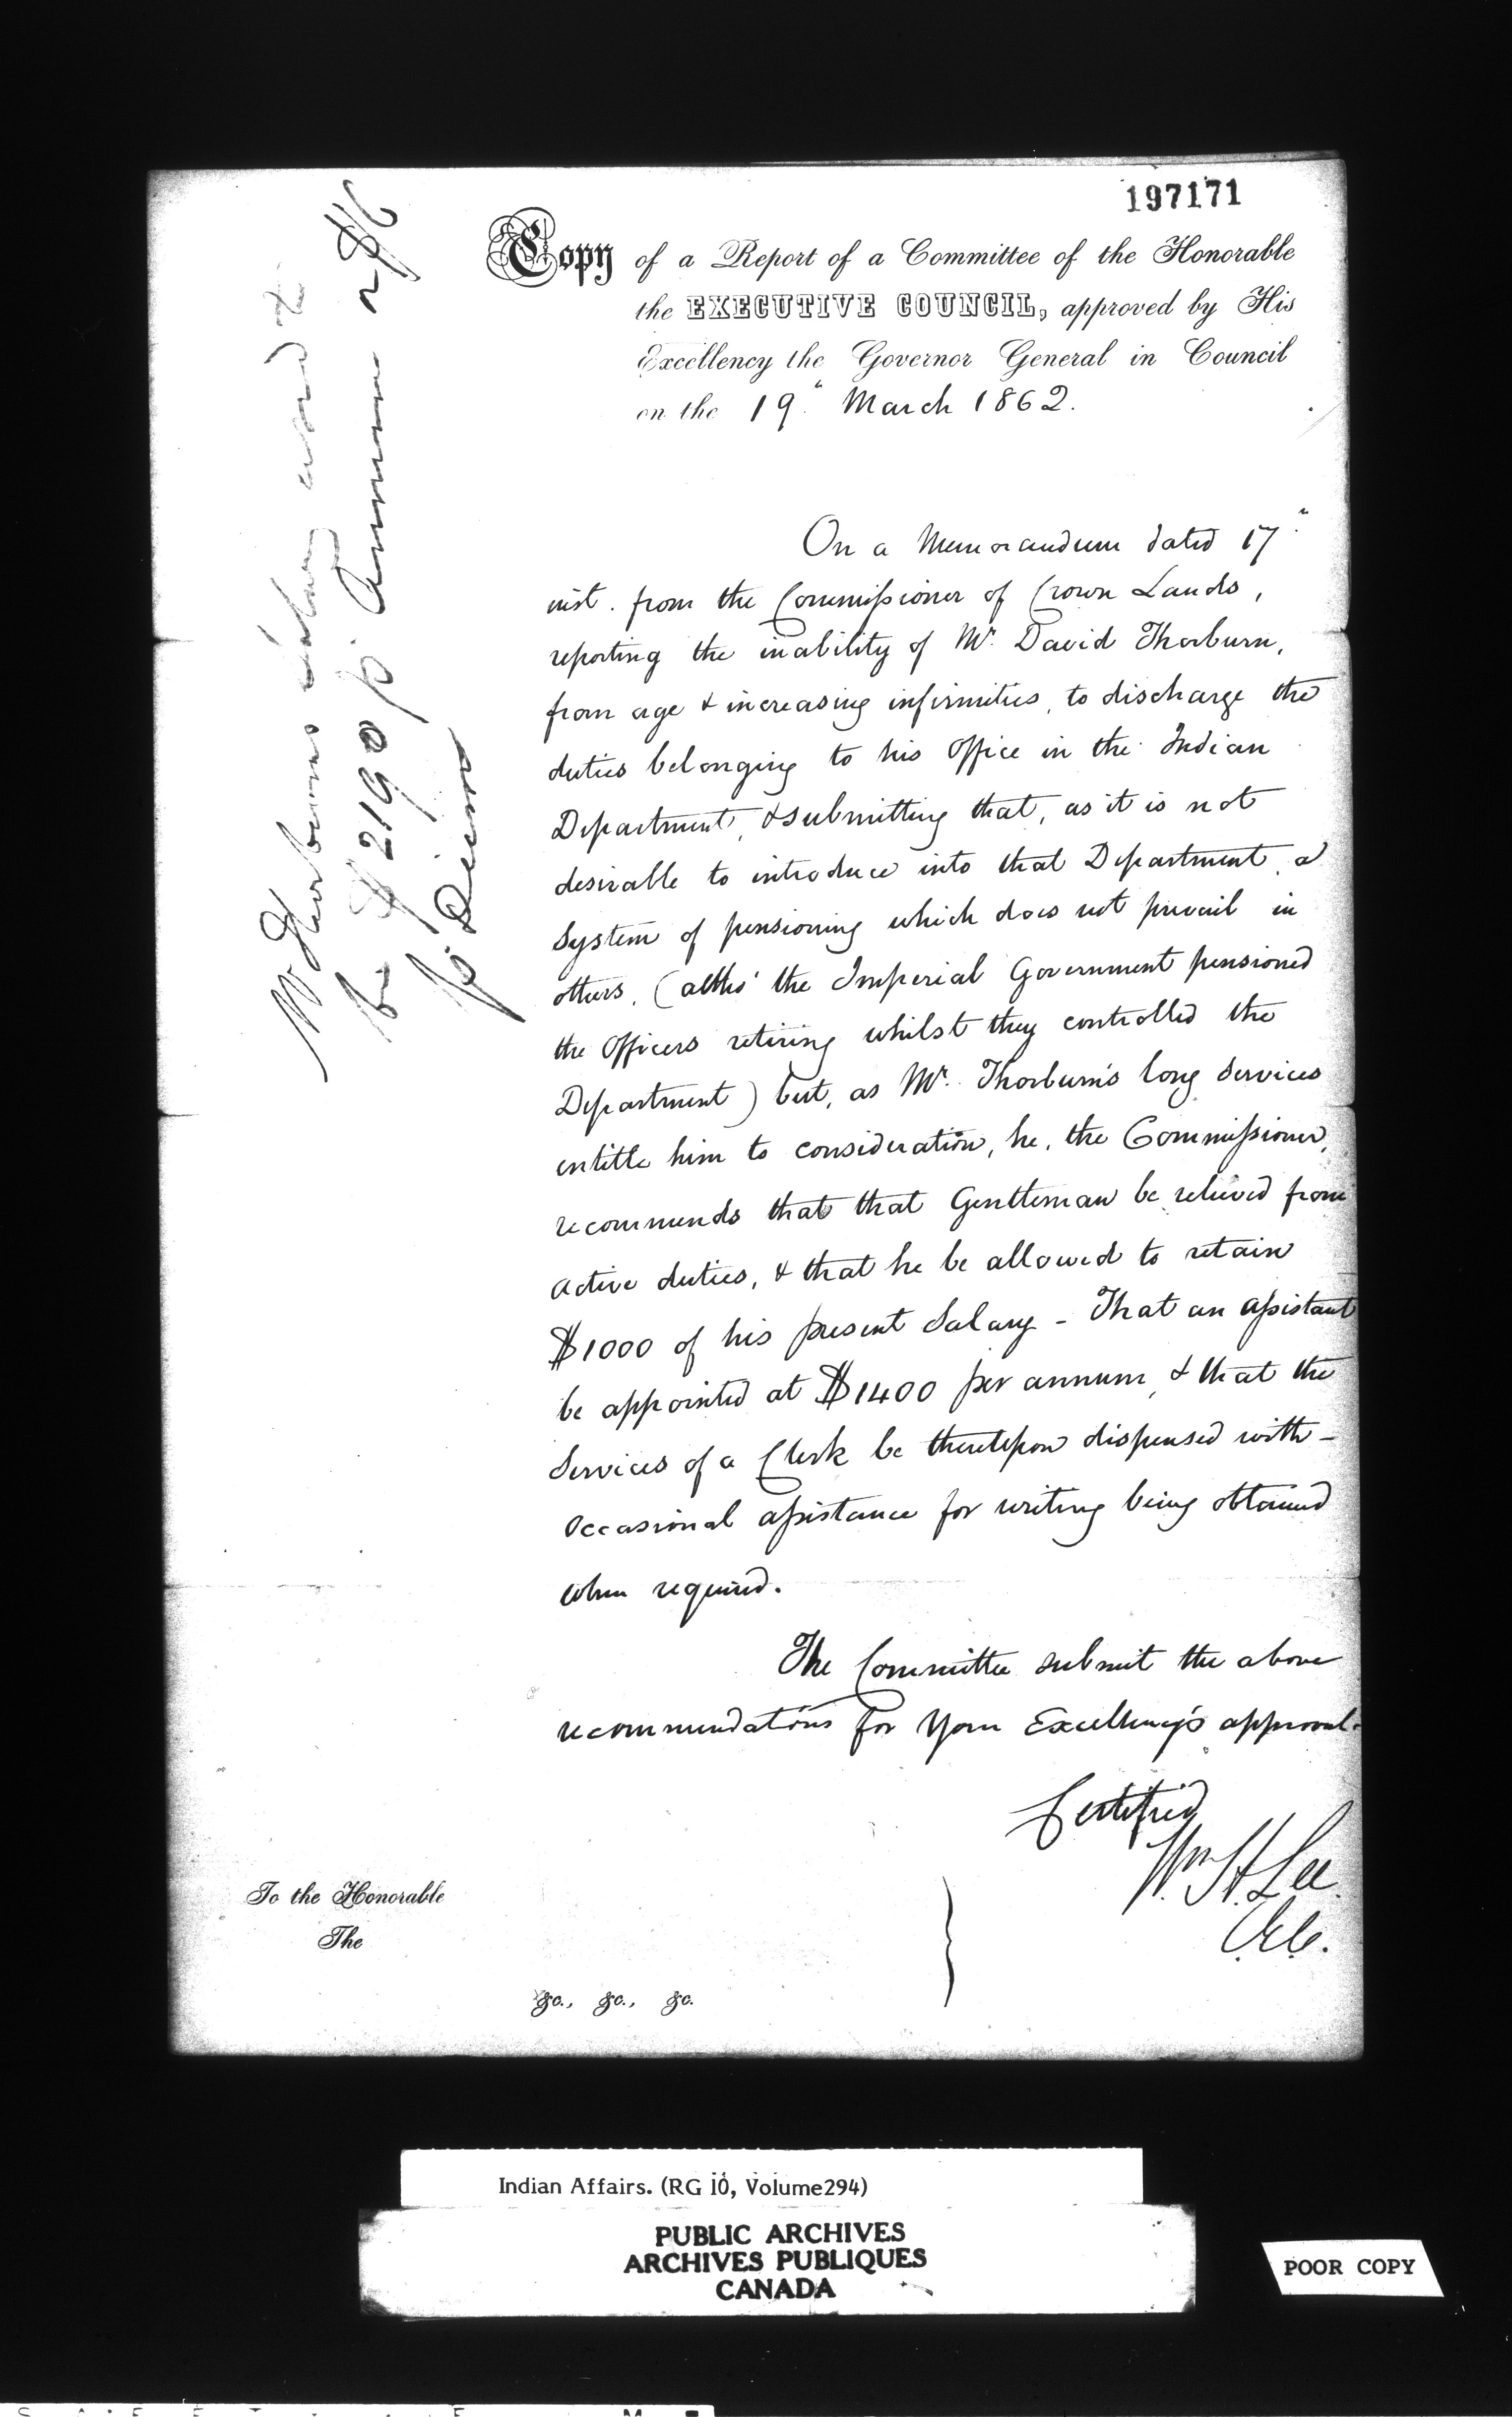 197171
Copy of a Report of a Committee of the Honorable
the EXECUTIVE COUNCIL, approved by His
Excellency the Governor General in Council
on the 19" March 1862.
On a Memorandum dated 17"
inst. from the Commissioner of Crown Lands,
reporting the inability of Mr. David Thorburn,
from age & increasing infirmities, to discharge the
duties belonging to his Office in the Indian
Department, & submitting that, as it is not
desirable to introduce into that Department, a
System of pensioning which does not prevail in
others, (altho' the Imperial Government pensioned
the Officers retiring whilst they controlled the
Department) but, as Mr. Thorburn's long Services
entitle him to consideration, he, the Commissioner,
recommends that that Gentleman be relieved from
active duties, & that he be allowed to retain
$1000 of his present Salary - That an assistant
be appointed at $1400 per annum, & that the
Services of a Clerk be thereupon dispensed with -
Occasional assistance for writing being obtained
when required.
The Committee submit the above
recommendations for Your Excellency's approval.
Certified
Wm. H. Lee.
C.E.C.
To the Honorable
The
&c., &c., &c.
Mr Thorburns Salary
$2190 p. Annum
Indian Affairs. (RG 10, Volume294)
PUBLIC ARCHIVES
ARCHIVES PUBLIQUES
CANADA
POOR COPY